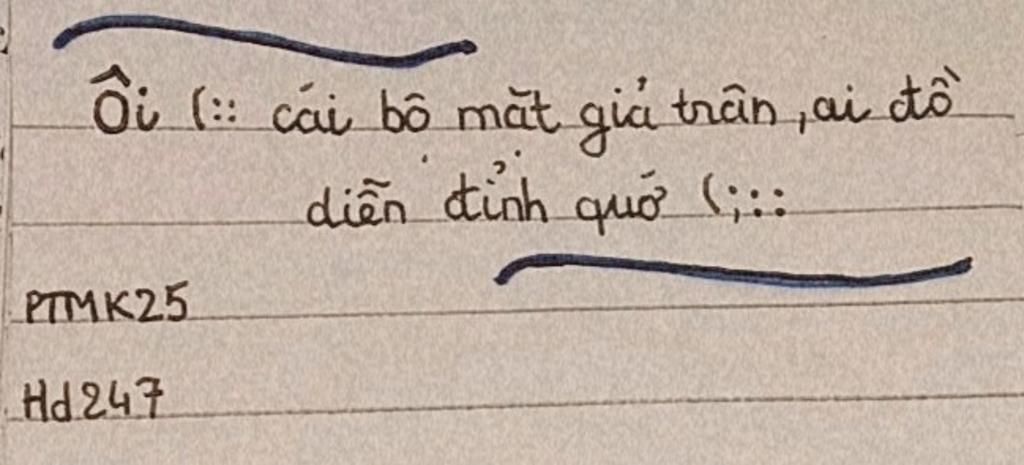 Ôi (:: cái bộ mặt giả trân, ai đồ
diễn đỉnh quớ (;::
PTMK25
Hd247